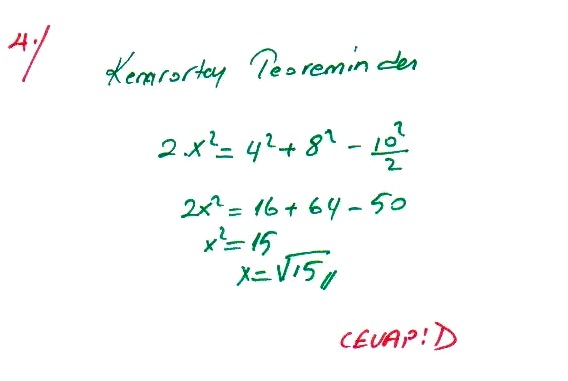 4./
Kenarortay Teoreminden
2.x² = 4² + 8² - 10²/2
2x² = 16 + 64 - 50
x² = 15
x = √15 //
CEVAP: D